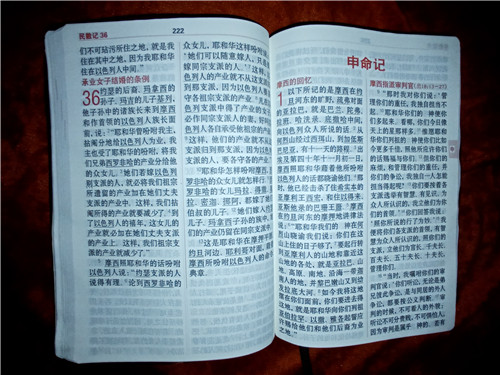 民数记36
222
们不可玷污所住之地，就是我
住在其中之地，因为我耶和华
住在以色列人中间。”
承业女子结婚的条例
36 约瑟的后裔，玛拿西的
孙子，玛吉的儿子基列，
他子孙中的诸族长来到摩西
和作首领的以色列人族长面
前，说：“耶和华曾吩咐我主，
拈阄分地给以色列人为业，我
主也受了耶和华的吩咐，将我
们兄弟西罗非哈的产业分给他
的众女儿。她们若嫁以色列
别支派的人，就必将我们祖宗
所遗留的产业加在她们丈夫
支派的产业中。这样，我们拈
阄所得的产业就要减少了。到
了以色列人的禧年，这女儿的
产业就必加在她们丈夫支派
的产业上。这样，我们祖宗支
派的产业就减少了。”
摩西照耶和华的话吩咐
以色列人说：“约瑟支派的人
说得有理。论到西罗非哈的
众女儿，耶和华这样吩咐说：
‘她们可以随意嫁人，只是要
嫁同宗支派的人。’这样，以
色列人的产业就不从这支派归
到那支派，因为以色列人要各
守各祖宗支派的产业。
归到别支派，因为以色列支派
的人要各守各的产业。”
耶和华怎样吩咐摩西，西
罗非哈的众女儿就怎样行。
拉、密迦、挪阿，都嫁了她们
伯叔的儿子。她们嫁入约瑟
儿子、玛拿西子孙的族中，她
们的产业仍留在同宗支派中。
这是耶和华在摩押平原
约旦河边、耶利哥对面，藉着
摩西所吩咐以色列人的命令
典章。
申命记
摩西的回忆
1 以下所记的是摩西在约
旦河东的旷野，疏弗对面
的亚拉巴，就是巴兰、陀弗、
拉班、哈洗录、底撒哈中间，
向以色列众人所说的话。从
何烈山经过西珥山，到加低斯
巴尼亚，有十一天的路程。出
埃及第四十年十一月初一日，
摩西照耶和华藉着他所吩咐
以色列人的话都晓谕他们。
那时，他已经击杀了住希实本的
亚摩利王西宏，和住以得来、
亚斯他录的巴珊王噩。摩西
在约旦河东的摩押地讲律法
说：“耶和华我们的　神在何
烈山晓谕我们说：你们在这
山上住的日子够了，要起行转
到亚摩利人的山地和靠近这
山地的各处，就是亚拉巴、山
地、高原、南地、沿海一带迦
南人的地，并黎巴嫩山又到幼
发拉底大河。如今我将这地
摆在你们面前，你们要进去得
这地，就是耶和华向你们列祖
亚伯拉罕、以撒、雅各起誓应
许赐给他们和他们后裔为业
之地。”
摩西指派审判官
“那时我对你们说：‘
管理你们的重任，我独自担当不
起。耶和华你们的　神使你
们多起来。看哪，你们今日像
天上的星那样多。惟愿耶和
华你们列祖的　神使你们比如
今更多千倍，照他所应许你们
的话赐福与你们。但你们的
麻烦，和管理你们的重任，并
你们的争讼，我独自一人怎能
担当得起呢？你们要按着各
支派选举有智慧、有见识、为
众人所认识的，我立他们为你
们的首领。’你们回答我说：
‘照你所说的行了为妙。’我便
将你们各支派的首领，有智慧
为众人所认识的，照你们的支
派，立他们为官长、千夫长、
百夫长、五十夫长、十夫长，
管理你们。
“当时，我嘱咐你们的审
判官说：‘你们听讼，无论是弟
兄彼此争讼，是与同居的外人
争讼，都要按公义判断。审
判的时候，不可看人的外貌；
听讼不可分贵贱，不可惧怕人，
因为审判是属乎　神的。若有